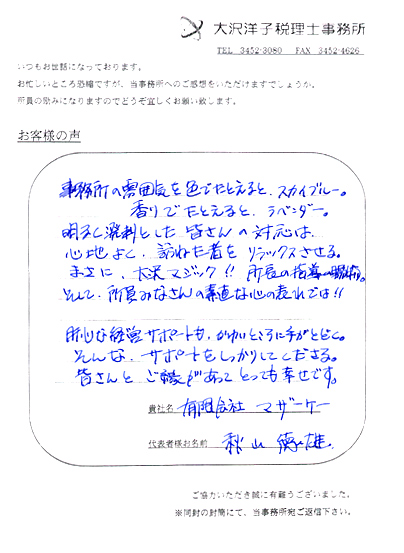 大沢洋子税理士事務所
TEL 3452-3080 FAX 3452-4626
いつもお世話になっております。
お忙しいところ恐縮ですが、当事務所へのご感想をいただけますでしょうか。
所員の励みになりますのでどうぞ宜しくお願い致します。
お客様の声
事務所の雰囲気を色でたとえると、スカイブルー。
香りでたとえると、ラベンダー。
明るく溌剌とした皆さんの対応は、
心地よく、訪ねた者をリラックスさせる。
まさに、大沢マジック!! 所長の指導の賜物。
そして、所員みなさんの素直な心の表れでは!!
肝心な経営サポートも、かゆいところに手がとどく。
そんな、サポートをしっかりしてくださる。
皆さんとご縁があってとっても幸せです。
貴社名 有限会社 マザーケー
代表者様お名前 秋山 徳雄
ご協力いただき誠に有難うございました。
※同封の封筒にて、当事務所宛ご返信下さい。